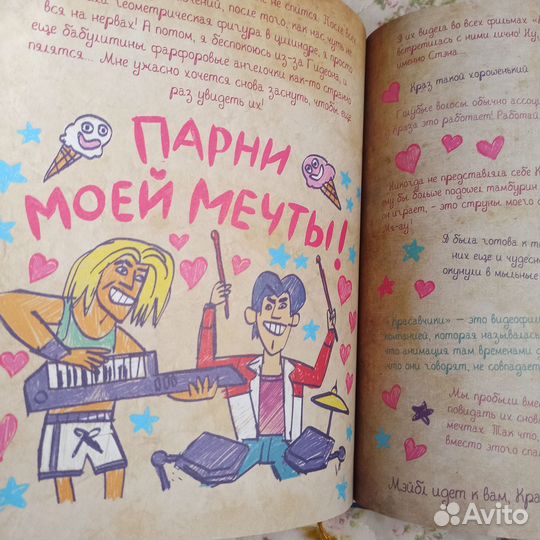 не спится. После
геометрическая фигура в цилиндре, и просто
вся на нервах! А потом, я беспокоюсь из-за Гидеона, и
еще бабулитины фарфоровые ангелочки как-то странно
пялятся... Мне ужасно хочется снова заснуть, чтобы еще
раз увидеть их!
ПАРНИ
МОЕЙ МЕЧТЫ!
Я их видела во всех фильмах
встретилась с ними лично! Ну,
именно Стэна...
Крэз такой хорошенький
Голубые волосы обычно ассоц
Крэза это работает! Работай
Никогда не представляла себе К
ему бы больше подошел тамбурин.
он играет, - это струны моего с
Мя-ау!
Я была готова к т
них еще и чудесн
окунули в мыльные
«Красавчики» - это видеофил
компанией, которая называлась
что анимация там временами д
что они говорят, не совпадает
Мы пробыли вме
повидать их снов
мечтах. Так что,
вместо этого спал
Мэйбл идет к вам, Кра
Avito